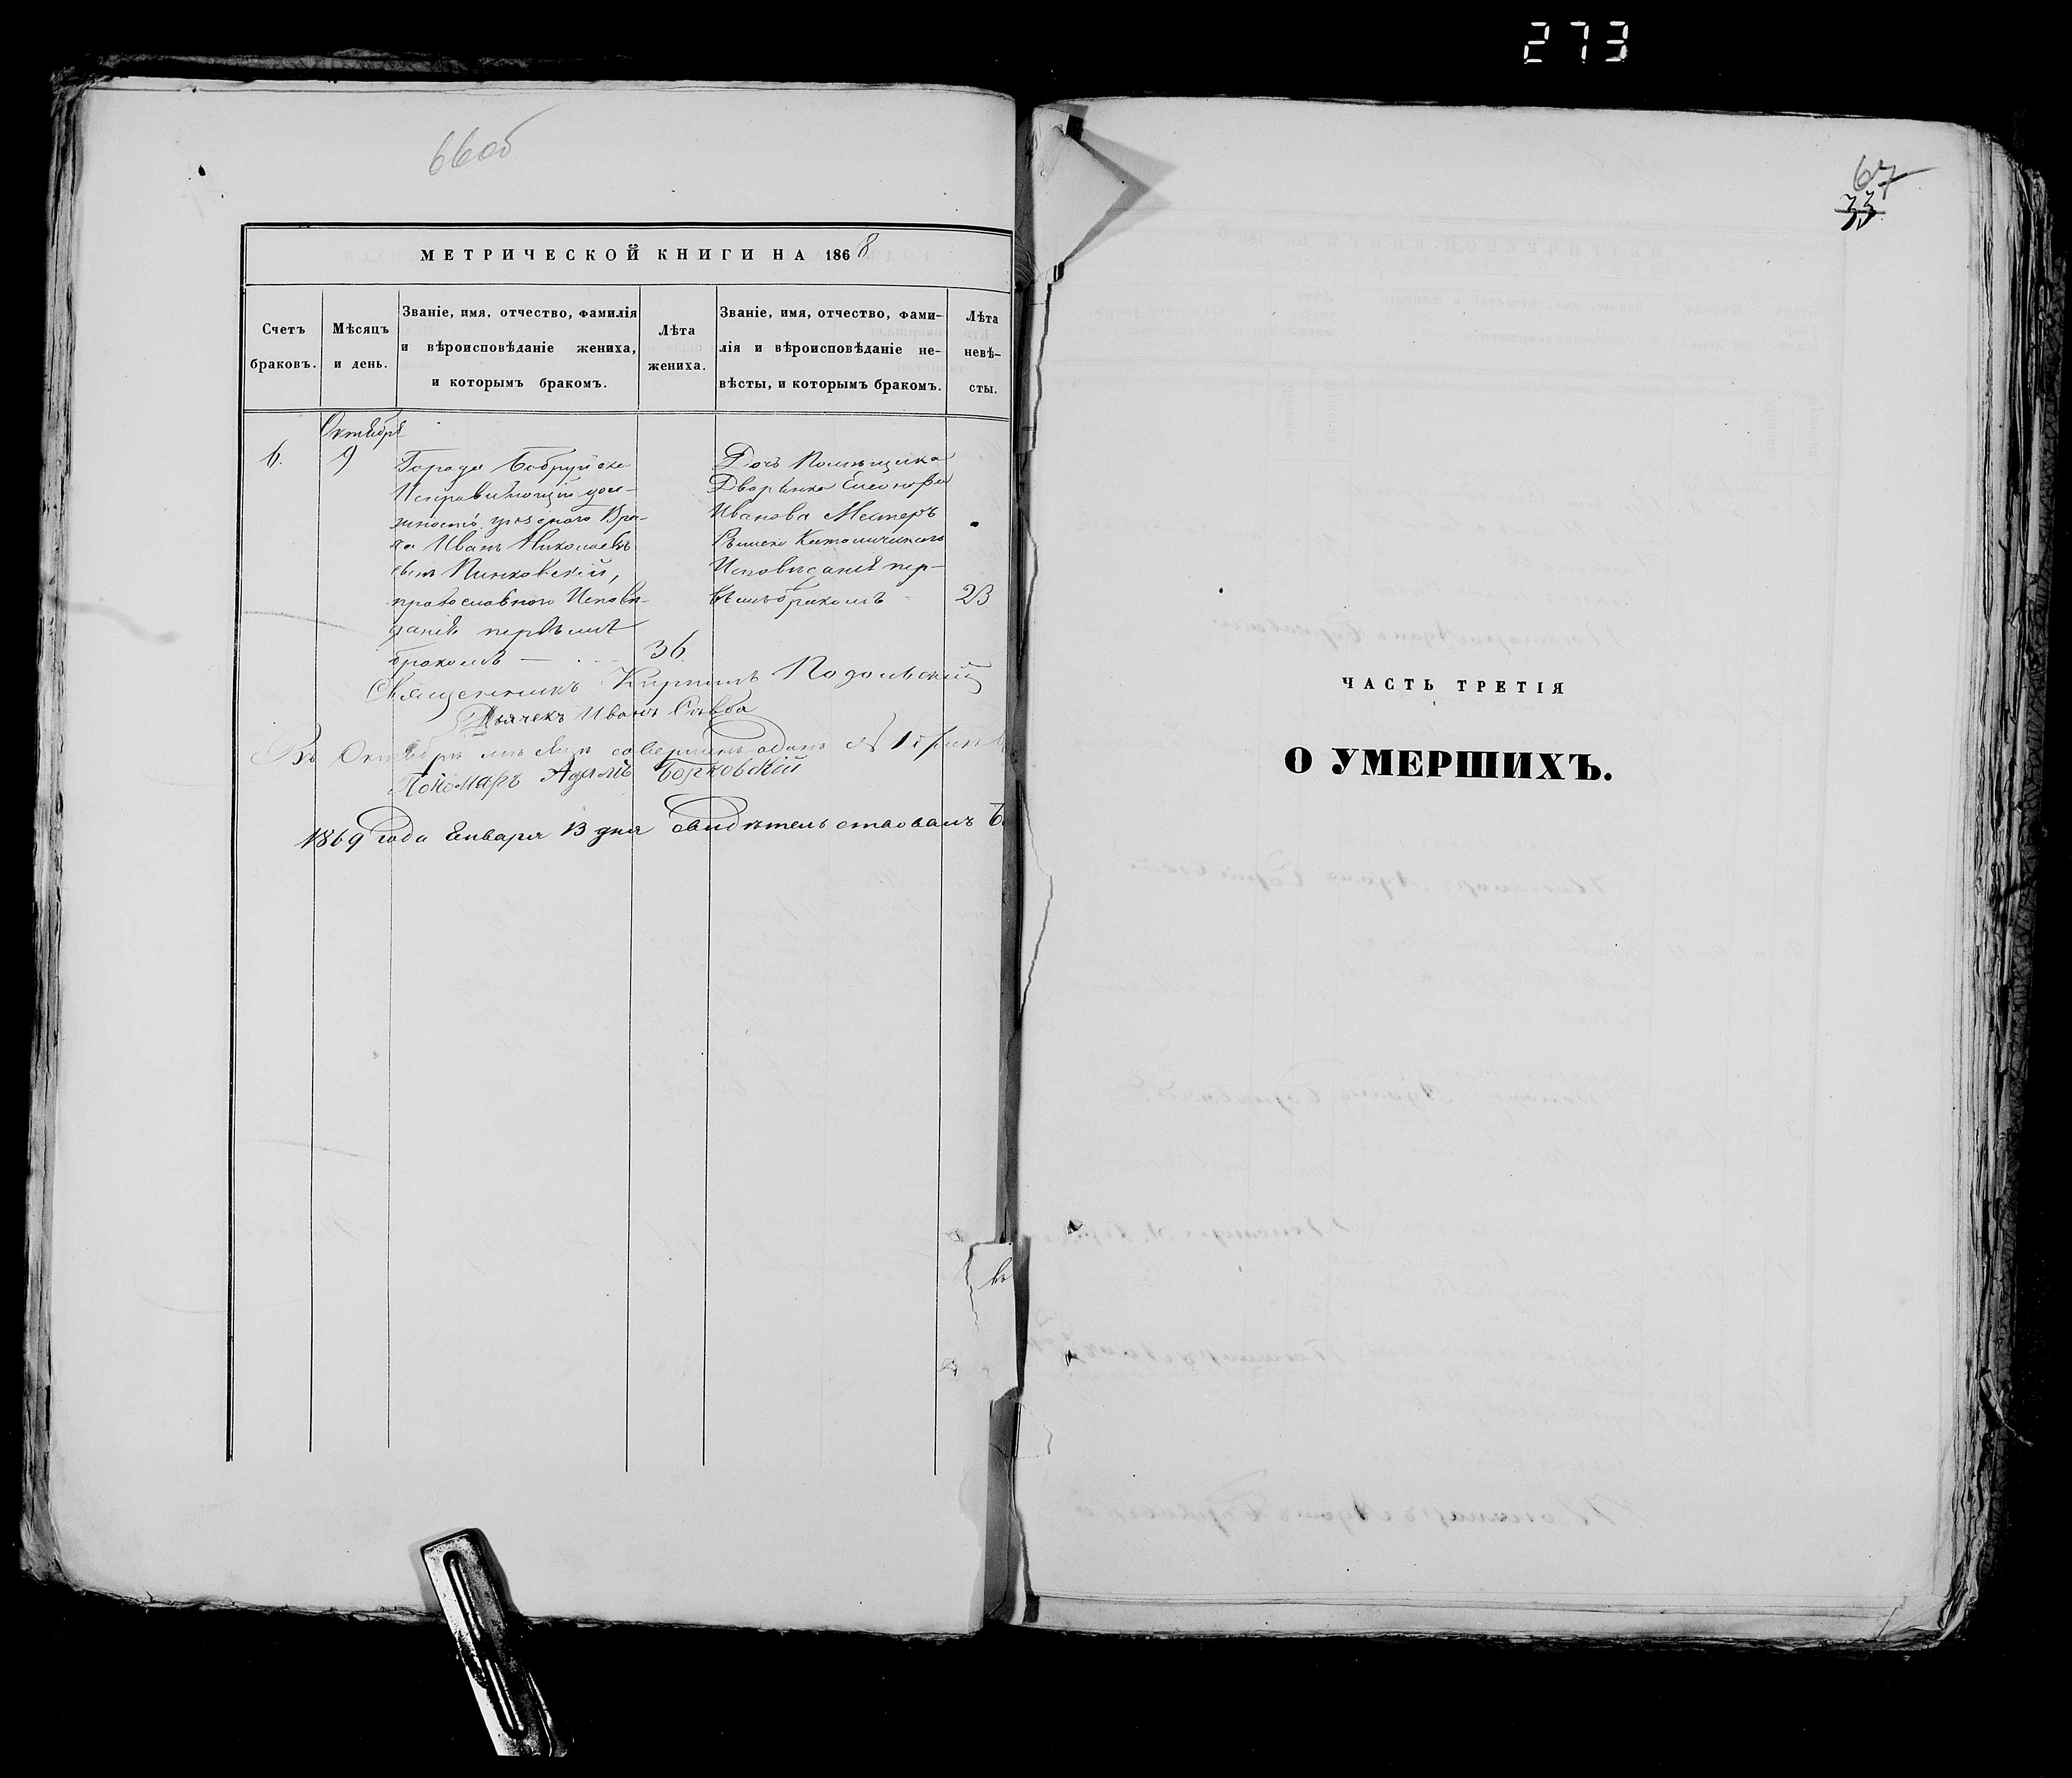 273
66об
МЕТРИЧЕСКОЙ КНИГИ НА 1868
Счетъ браковъ.
Мѣсяцъ и день.
Званіе, имя, отчество, фамилія
и вѣроисповѣданіе жениха,
и которымъ бракомъ.
Лѣта жениха.
Званіе, имя, отчество, фами-
лія и вѣроисповѣданіе не-
вѣсты, и которымъ бракомъ.
Лѣта невѣ-
сты.
Октября
6. 9
Города Бобруйска
Исправляющій дол-
жность уѣзднаго Вра-
ча Иванъ Николаевъ
сынъ Пинковскій,
православнаго Исповѣ-
данія первымъ
бракомъ —
36.
Дочь Помѣщика
Дворянка Елеонора
Иванова
Римско Католическаго
Исповѣданія пер-
вымъ бракомъ
23
Священникъ Кириллъ Подольский
Дьячекъ Иванъ
Въ Октябрѣ мѣсяцѣ совершенъ одинъ № 1
Пономарь Адамъ Борковскій
1869 года Января 13 дня свидѣтельствовалъ
въ
67
33
ЧАСТЬ ТРЕТІЯ
О УМЕРШИХЪ.